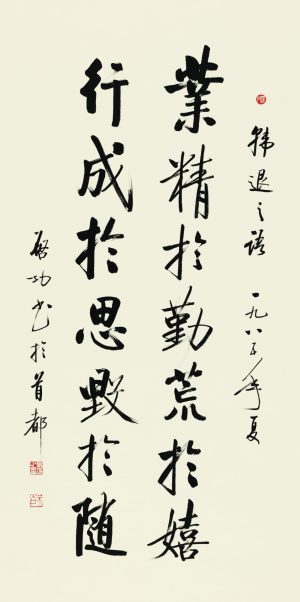 韓退之語 一九八五年夏
業精於勤荒於嬉
行成於思毀於随
啟功書於首都